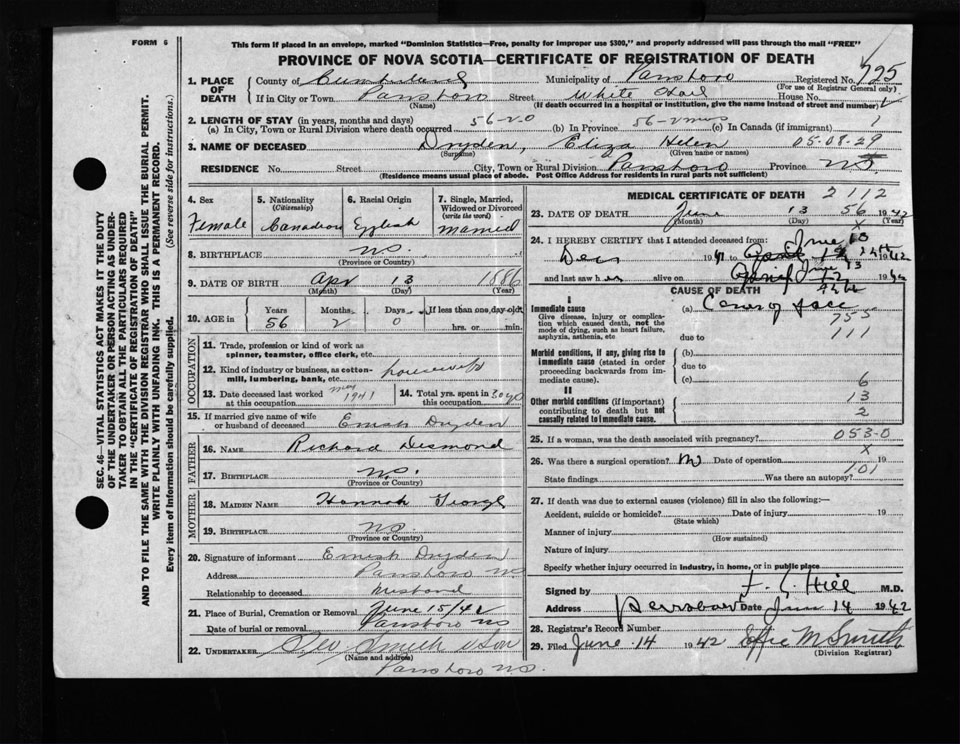 FORM 6
This form if placed in an envelope, marked "Dominion Statistics—Free, penalty for improper use $300," and properly addressed will pass through the mail "FREE"
PROVINCE OF NOVA SCOTIA—CERTIFICATE OF REGISTRATION OF DEATH
SEC. 46—VITAL STATISTICS ACT MAKES IT THE DUTY
OF THE UNDERTAKER OR PERSON ACTING AS UNDER-
TAKER TO OBTAIN ALL THE PARTICULARS REQUIRED
IN THE "CERTIFICATE OF REGISTRATION OF DEATH"
AND TO FILE THE SAME WITH THE DIVISION REGISTRAR WHO SHALL ISSUE THE BURIAL PERMIT.
WRITE PLAINLY WITH UNFADING INK. THIS IS A PERMANENT RECORD.
Every item of information should be carefully supplied. (See reverse side for instructions.)
1. PLACE OF DEATH
County of Cumberland Municipality of Parrsboro Registered No. 725
(For use of Registrar General only)
If in City or Town Parrsboro Street White Hall House No.
(Name) (If death occurred in a hospital or institution, give the name instead of street and number)
2. LENGTH OF STAY (in years, months and days)
(a) In City, Town or Rural Division where death occurred 56-2-0 (b) In Province 56-2 mos (c) In Canada (if immigrant) 1
3. NAME OF DECEASED Dryden, Eliza Helen 05-08-29
(Surname) (Given name or names)
RESIDENCE No. Street City, Town or Rural Division Parrsboro Province NS
(Residence means usual place of abode. Post Office Address for residents in rural parts not sufficient)
4. Sex
Female
5. Nationality
(Citizenship)
Canadian
6. Racial Origin
English
7. Single, Married,
Widowed or Divorced
(write the word)
married
8. BIRTHPLACE NS.
(Province or Country)
9. DATE OF BIRTH Apr 13 1886
(Month) (Day) (Year)
10. AGE in Years Months Days If less than one day old
56 2 0 hrs. or min.
OCCUPATION
11. Trade, profession or kind of work as
spinner, teamster, office clerk, etc.
12. Kind of industry or business, as cotton-
mill, lumbering, bank, etc. housewife
13. Date deceased last worked
at this occupation May 1941
14. Total yrs. spent in
this occupation 30 yrs
15. If married give name of wife
or husband of deceased Dryden
FATHER
16. Name Richard Desmond
17. Birthplace NS.
(Province or Country)
MOTHER
18. Maiden Name Hannah George
19. Birthplace NS
(Province or Country)
20. Signature of informant Dryden
Address Parrsboro NS
Relationship to deceased Husband
21. Place of Burial, Cremation or Removal June 15/42
Date of burial or removal Parrsboro NS
22. Undertaker Geo Smith & Son
(Name and address)
Parrsboro NS.
MEDICAL CERTIFICATE OF DEATH 2112
23. DATE OF DEATH June 13 56 1942
(Month) (Day) (Year)
24. I HEREBY CERTIFY that I attended deceased from:
Dec 1941 to June 13 1942
and last saw her alive on June 13 1942
CAUSE OF DEATH
I
Immediate cause
Give disease, injury or complica-
tion which caused death, not the
mode of dying, such as heart failure,
asphyxia, asthenia, etc
(a) Cancer of face
755
due to 111
Morbid conditions, if any, giving rise to
immediate cause (stated in order
proceeding backwards from im-
mediate cause).
(b)
due to
(c) 6
II
Other morbid conditions (if important)
contributing to death but not
causally related to immediate cause.
13
2
25. If a woman, was the death associated with pregnancy? 053-0
x
26. Was there a surgical operation? No Date of operation 19
State findings Was there an autopsy? 101
27. If death was due to external causes (violence) fill in also the following:—
Accident, suicide or homicide? Date of injury 19
(State which)
Manner of injury
(How sustained)
Nature of injury
Specify whether injury occurred in industry, in home, or in public place
Signed by F. C. Hill M.D.
Address Parrsboro Date June 14 1942
28. Registrar's Record Number
29. Filed June 14 1942 Effie M Smith
(Division Registrar)